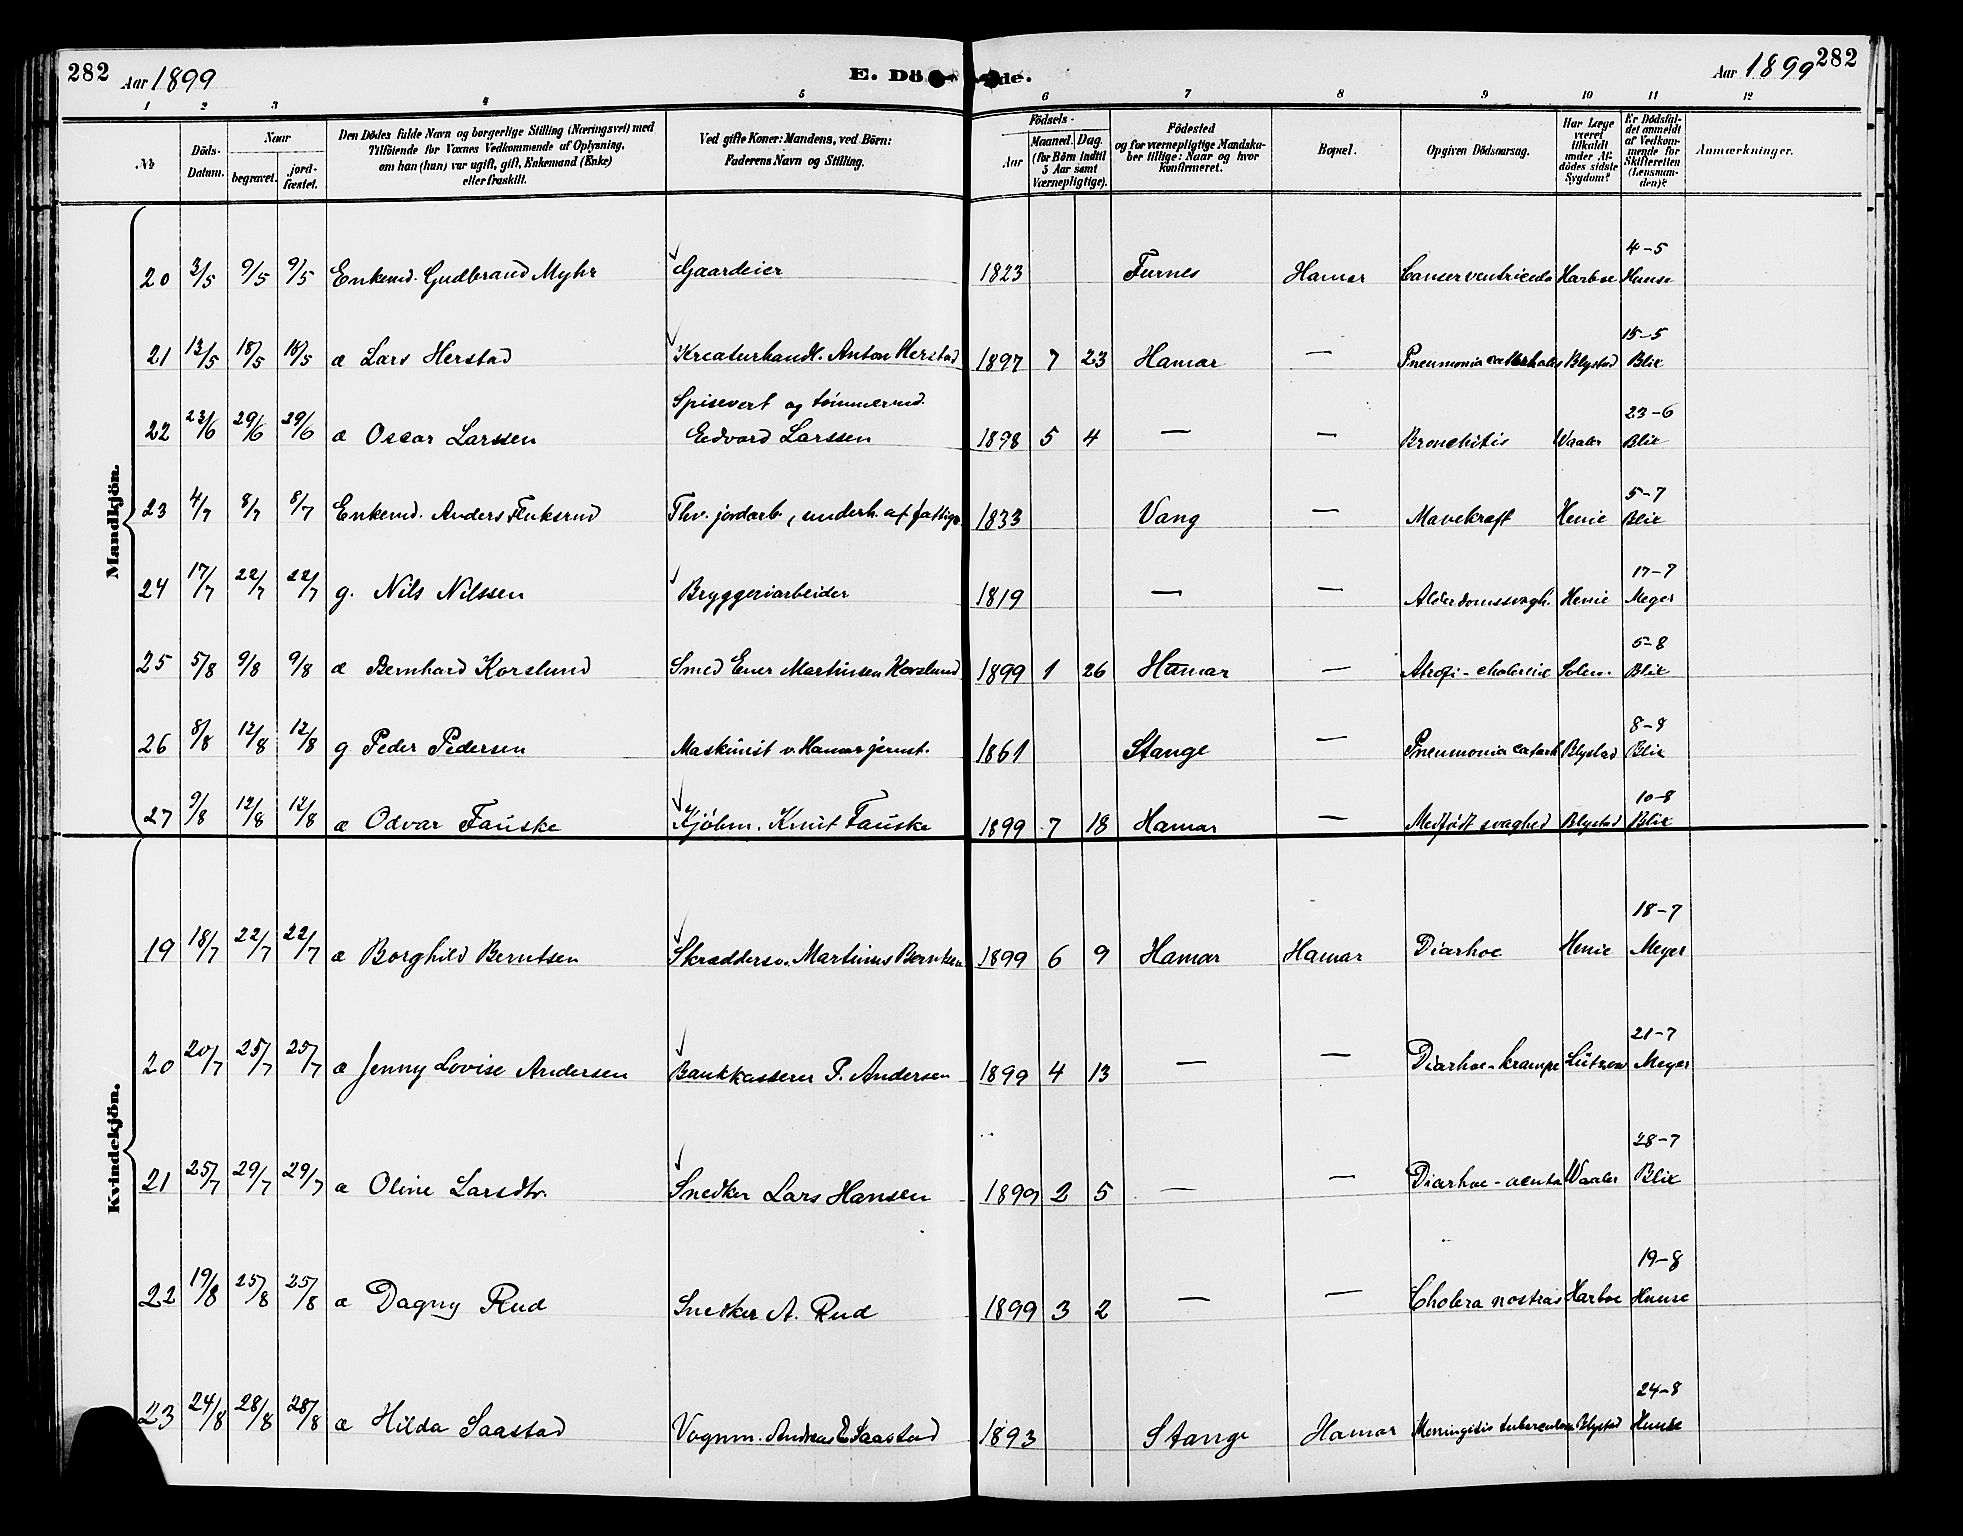 282 Aar 1899 E. Dö de. Aar 1899 282
1 2 3 4 5 6 7 8 9 10 11 12
No
Döds-Datum.
Naar
begravet.
jord-fæstet.
Den Dödes fulde Navn og borgerlige Stilling (Næringsvei) med
Tilföiende for Voxnes Vedkommende af Oplysning,
om han (hun) var ugift, gift, Enkemand (Enke)
eller fraskilt.
Ved gifte Koner: Mandens, ved Börn:
Faderens Navn og Stilling.
Födsels-
Aar
Maaned. Dag.
(for Börn indtil
5 Aar samt
Værnepligtige).
Födested
og for værnepligtige Mandska-
ber tillige: Naar og hvor
konfirmeret.
Bopæl.
Opgiven Dödsaarsag.
Har Læge
været
tilkaldt
under Af-
dödes sidste
Sygdom?
Er Dödsfal-
det anmeldt
af Vedkom-
mende for
Skifteretten
(Lensman-
den)?
Anmærkninger.
Mandkjön.
20 3/5 9/5 9/5 Enkemd. Gudbrand Myhr Gaardeier 1823 Furnes Hamar Cancer ventriculi Harboe 4-5 Hunse
21 13/5 18/5 18/5 a Lars Herstad Kreaturhandl. Anton Herstad 1897 7 23 Hamar — Pneumonia catarrhalis Blystad 15-5 Blix
22 23/6 29/6 29/6 a Oscar Larssen Spisevert og tömmermd. Edvard Larssen 1898 5 4 — — Bronchitis Waaler 23-6 Blix
23 4/7 8/7 8/7 Enkemd. Anders Fluksrud Fhv. jordarb., underh. af fattigv. 1833 Vang — Mavekræft Henie 5-7 Blix
24 17/7 22/7 22/7 g. Nils Nilssen Bryggeriarbeider 1819 — — Alderdomssvagh. Henie 17-7 Meyer
25 5/8 9/8 9/8 a Bernhard Korslund Smed Ener Martinsen Korslund 1899 1 26 Hamar — Atrofi - cholerine Solem. 5-8 Blix
26 8/8 12/8 12/8 g Peder Pedersen Maskinist v. Hamar jernst. 1861 Stange — Pneumonia catarrh Blystad 8-8 Blix
27 9/8 12/8 12/8 a Odvar Fauske Kjöbm. Knut Fauske 1899 7 18 Hamar — Medfödt svaghed Blystad 10-8 Blix
Kvindekjön.
19 18/7 22/7 22/7 a Borghild Berntsen Skræddersv. Martinius Berntsen 1899 6 9 Hamar Hamar Diarhoe Henie 18-7 Meyer
20 20/7 25/7 25/7 a Jenny Lovise Andersen Bankkasserer P. Andersen 1899 4 13 — — Diarhoe-krampe Lützow 21-7 Meyer
21 25/7 29/7 29/7 a Oline Larsdtr. Snedker Lars Hansen 1899 2 5 — — Diarhoe - acuta Waaler 28-7 Blix
22 19/8 25/8 25/8 a Dagny Rud Snedker A. Rud 1899 3 2 — — Cholera nostras Harboe 19-8 Hunse
23 24/8 28/8 28/8 a Hilda Saastad Vognm. Andreas E Saastad 1893 Stange Hamar Meningitis tuberculosa Blystad 24-8 Hunse